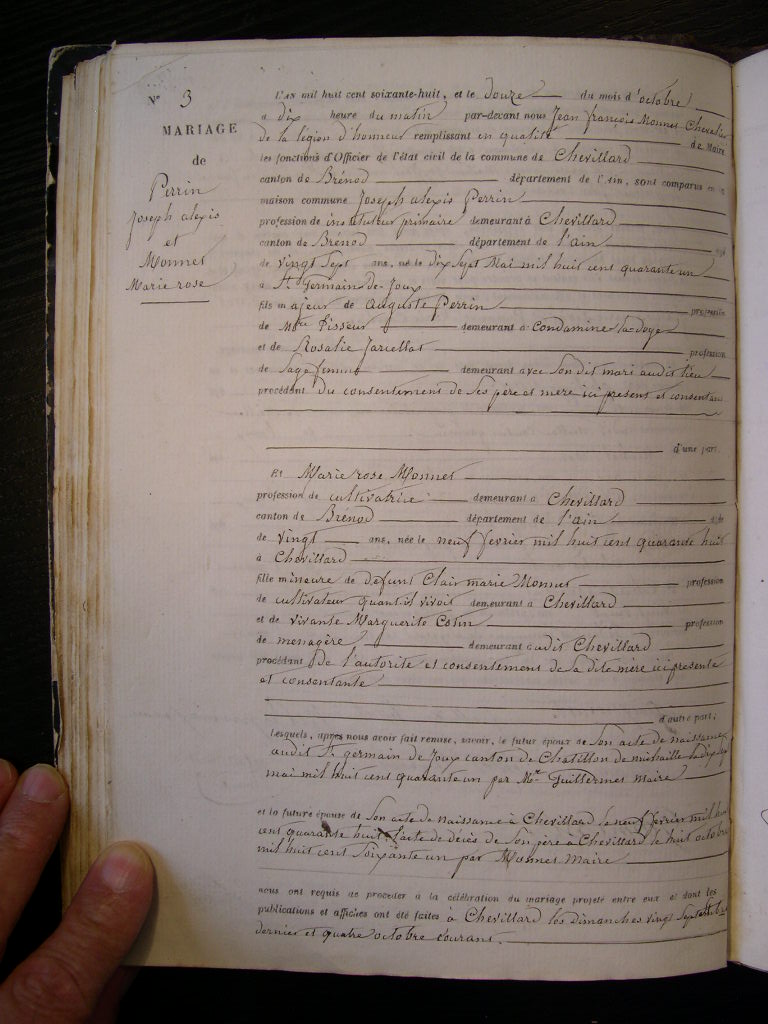 N° 3
MARIAGE
de
Perrin
Joseph alexis
et
Monnet
Marie rose
L'AN mil huit cent soixante-huit, et le douze du mois d'octobre
a dix heure du matin par-devant nous Jean françois Monnet Chevalier
de la légion d'honneur remplissant en qualité de Maire
les fonctions d'Officier de l'état civil de la commune de Chevillard
canton de Brénod département de l'Ain, sont comparus en la
maison commune Joseph alexis Perrin
profession de instituteur primaire demeurant à Chevillard
canton de Brénod département de l'ain âgé
de vingt Sept ans, né le dix Sept Mai mil huit cent quarante un
à St Germain de Joux
fils majeur de Auguste Perrin profession
de Mtre Tisseur demeurant à Condamine la doye
et de Rosalie Jarcellat profession
de Sage femme demeurant avec Son dit mari audit lieu
procédant du consentement de Ses père et mère ici présent et consentan
d'une part.
Et Marie rose Monnet
profession de cultivatrice demeurant à Chevillard
canton de Brénod département de l'ain âgée
de vingt ans, née le neuf février mil huit cent quarante huit
à Chevillard
fille mineure de defunt Clair marie Monnet profession
de cultivateur quant il vivoit demeurant à Chevillard
et de vivante Marguerite Cotin profession
de menagère demeurant audit Chevillard
procédant De l'autorité et consentement de Sa dite mère ici présente
et consentante
d'autre part;
Lesquels, après nous avoir fait remise, savoir, le futur époux de Son acte de naissance
audit St germain de Joux canton de Chatillon de michaille le dix Sept
mai mil huit cent quarante un par Mr Guillermet Maire
et la future épouse de Son acte de naissance à Chevillard le neuf février mil huit
cent quarante huit, l'acte de décès de Son père à Chevillard le huit octobre
mil huit cent Soixante un par Monnet Maire
nous ont requis de procéder à la célébration du mariage projeté entre eux et dont les
publications et affiches ont été faites à Chevillard les dimanches vingt Sept Septembre
dernier et quatre octobre courant.